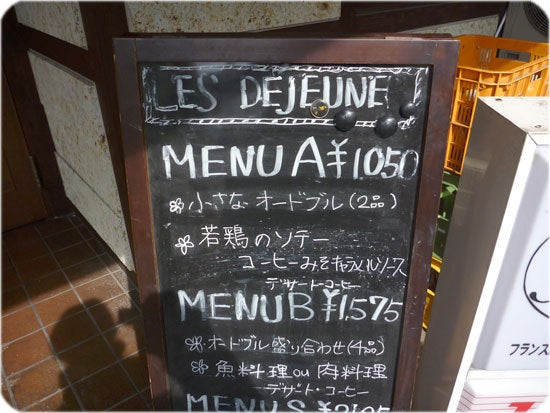 LES DEJEUNE
MENU A ¥1,050
小さな オードブル(2品)
若鶏のソテー
コーヒーみそキャラメルソース
デザート・コーヒー
MENU B ¥1,575
オードブル盛り合わせ(4品)
魚料理 ou 肉料理
デザート・コーヒー
MENU S ¥2,105
フランス